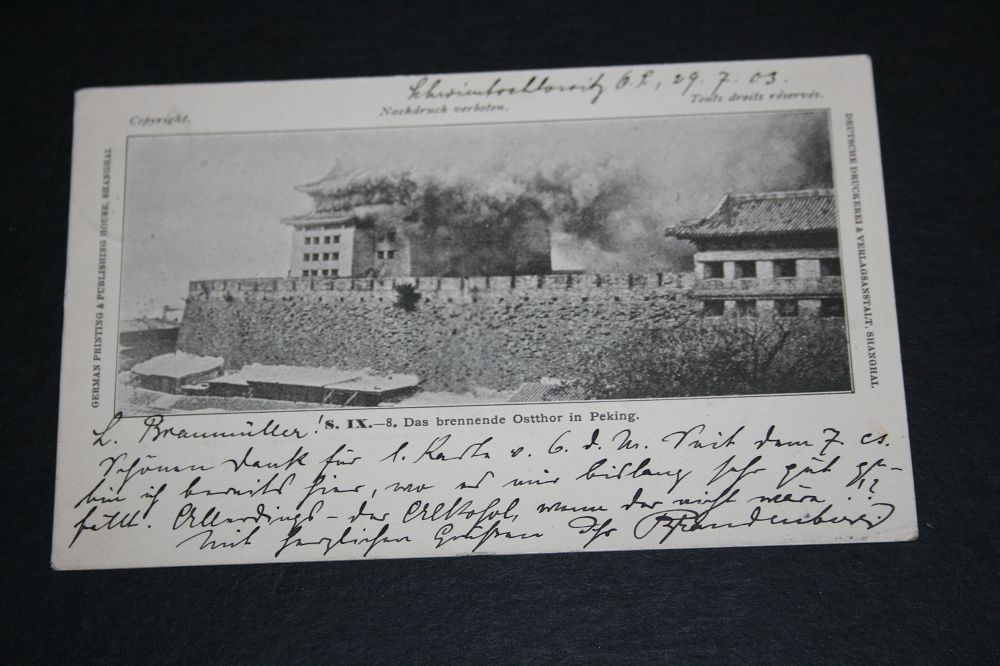 Schwientochlowitz O.S., 29. 7. 03.
Copyright.
Nachdruck verboten.
Touts droits réservés.
GERMAN PRINTING & PUBLISHING HOUSE, SHANGHAI
DEUTSCHE DRUCKEREI & VERLAGSANSTALT, SHANGHAI.
S. IX.—8. Das brennende Ostthor in Peking.
L. Braumüller!
Schönen Dank für l. Karte v. 6. d. M. Seit dem 7. cs.
bin ich bereits hier, wo es mir bislang sehr gut ge-
fällt. Allerdings - der Alkohol, wenn der nicht wäre!!?
Mit herzlichen Grüßen Ihr Brandenburg